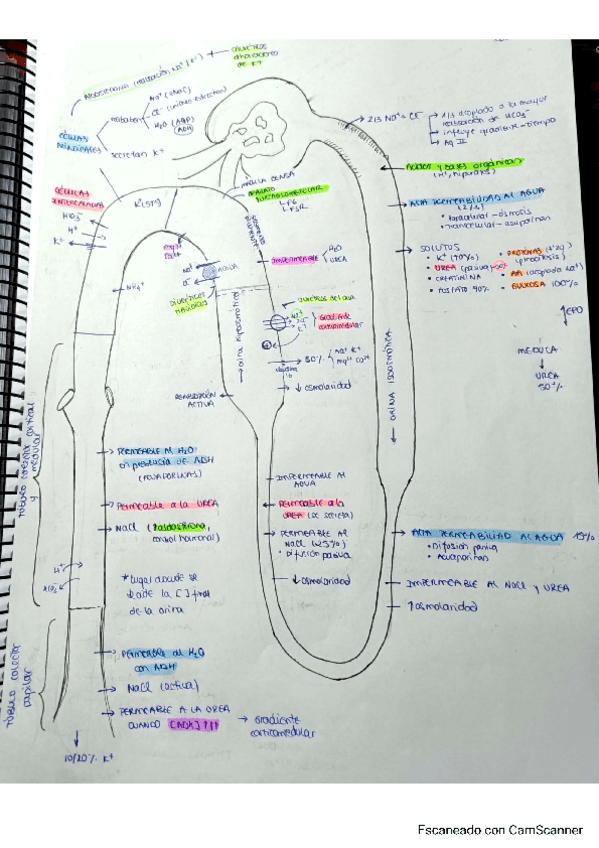 Aldosterona (reabsorción Na⁺/K⁺)
DIURÉTICOS
ahorradores
de K⁺
CÉLULAS
PRINCIPALES
reabsorben
Na⁺ (ENaC)
Cl⁻
H₂O (AQP)
ADH
secretan K⁺
CÉLULAS
INTERCALADAS
HCO₃⁻
H⁺
K⁺
NH₄⁺
MÁCULA DENSA
APARATO
YUXTAGLOMERULAR
IMPERMEABLE
H₂O
UREA
Na⁺
Cl⁻
AGUA
DIURÉTICOS
TIAZIDAS
ORINA HIPOOSMÓTICA
Gradiente
corticomedular
50%
Na⁺ K⁺
Mg²⁺ Ca²⁺
↓ osmolaridad
REABSORCIÓN
ACTIVA
2/3 Na⁺ - Cl⁻
1/3 acoplado a la mayor
reabsorción de HCO₃⁻
influye gradiente-tiempo
Ag II
Ácidos y bases orgánicas
(H⁺, hipuratos)
ALTA PERMEABILIDAD AL AGUA
paracelular - ósmosis
transcelular - acuaporinas
SOLUTOS
• K⁺ (70%)
• UREA
• CREATININA
• FOSFATO 90%
• PROTEÍNAS
(pinocitosis)
• AA (acoplado Na⁺)
• GLUCOSA 100%
↑EPO
MÉDULA
↓
UREA
50%
ORINA ISOOSMÓTICA
TÚBULO COLECTOR cortical
y medular
PERMEABLE AL H₂O
en presencia de ADH
(ACUAPORINAS)
Permeable a la UREA
NaCl (aldosterona,
control hormonal)
H⁺
HCO₃⁻
* lugar donde se
de la orina
IMPERMEABLE AL
AGUA
PERMEABLE a la
UREA (se secreta)
PERMEABLE AL
NaCl (25%)
• Difusión pasiva
↓ osmolaridad
ALTA PERMEABILIDAD AL AGUA 15%
• Difusión pasiva
• Acuaporinas
IMPERMEABLE AL NaCl y UREA
↑ osmolaridad
TÚBULO COLECTOR
papilar
PERMEABLE al H₂O
con ADH
NaCl (activa)
PERMEABLE A LA UREA
CUANDO [ADH]↑↑↑
→ Gradiente
corticomedular
10/20% K⁺
Escaneado con CamScanner